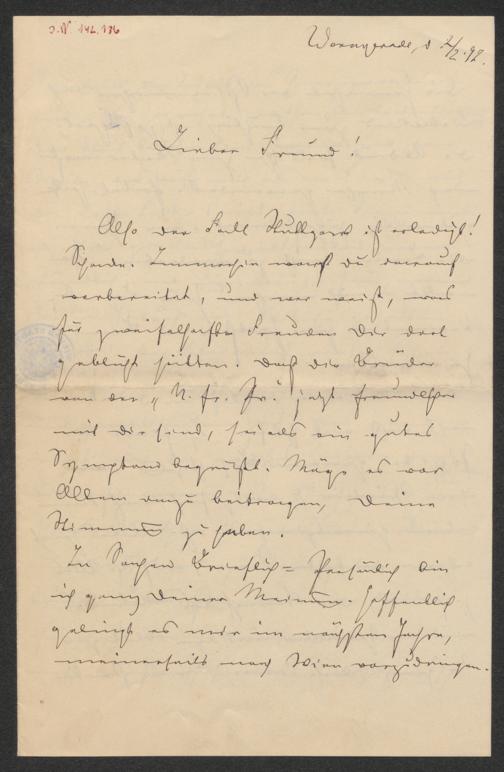 J.N. 142.136
Wernigerode, d. 2/2.92.
Lieber Freund!
Also der Fall Stuttgart ist erledigt!
Schade. Immerhin warst Du darauf
vorbereitet, und wer weiß, was
für zweifelhafte Freuden Dir dort
geblüht hätten. Daß die Brüder
von der „N. Fr. Pr." jetzt freundlicher
mit Dir sind, sei als ein gutes
Symptom begrüßt. Möge es vor
Allem dazu beitragen, Deine
Stimmung zu heben.
In Sachen Brieflich = Persönlich bin
ich ganz Deiner Meinung. Hoffentlich
gelingt es mir im nächsten Jahre,
meinerseits nach Wien vorzudringen.